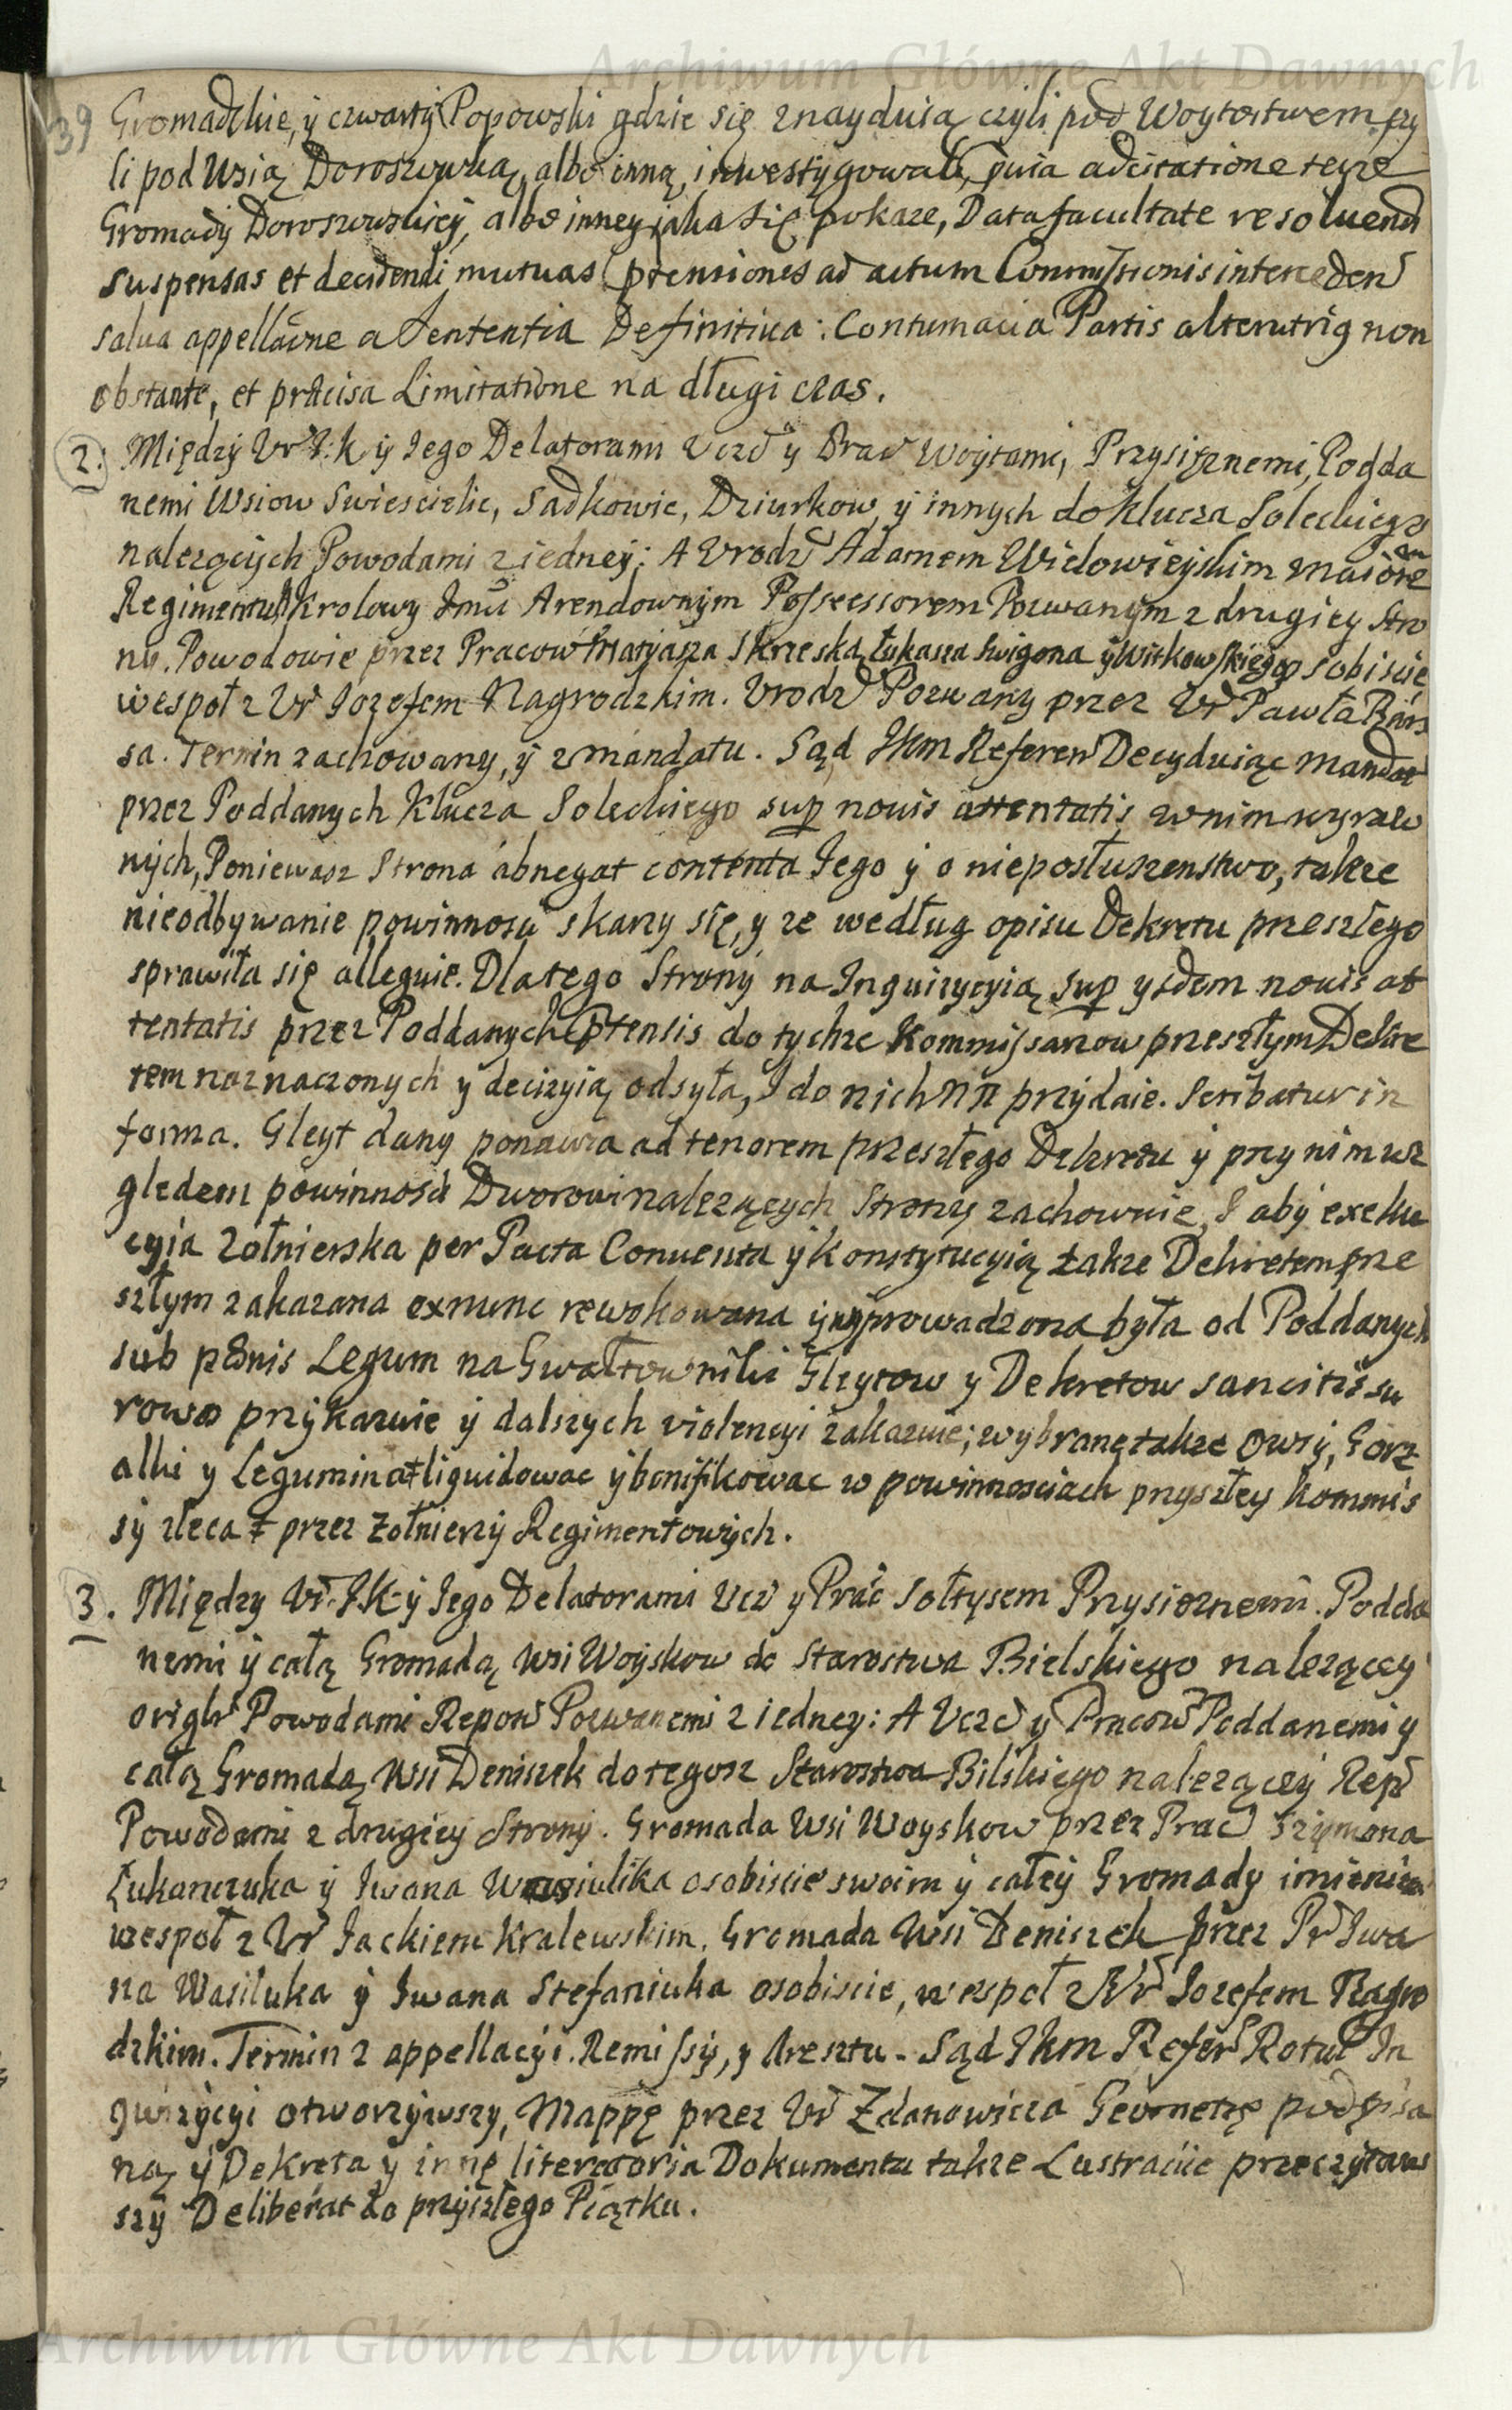 Archiwum Główne Akt Dawnych
39
Gromadzkie, y czwarty Popowski gdzie się znayduią czyli pod Woytostwem czy
li pod Wsią Doroszowką, albo inną, inwestygowali, pvia adcitatione teyże
Gromady Doroszowskiey, albo inney jaka się pokaze, Data facultate resoluendi
suspensas et decidendi mutuas ptensiones ad actum Commissionis interceden
salua appellaõne a Sententia Definitiua: Contumacia Partis alterutrig non
obstante, et præcisa Limitatione na długi czas.
2. Między Ur I.K y Jego Delatorami Uczc y Prac Woytami, Przysiężnemi, Podda
nemi Wsiow Swiescielic, Sadkowic, Dziurkow, y innych do klucza Soleckiego
nalezących Powodami z iedney: A Urodz Adamem Wielowieyskim Maiore
Regimentu Krolowy Jmci Arendownym Possessorem Pozwanym z drugiey Stro
ny. Powodowie przez Pracow Matyasza Skrzeska, Łukasza Swigona y Witkowskiego osobiscie
wespoł z Ur Jozefem Nagrodzkim. Urodz Pozwany przez Ur Pawła Bars
sa. Termin zachowany, y z mandatu. Sąd JKM Referen Decyduiąc Mandat
przez Poddanych Klucza Soleckiego sup nouis attentatis w nim wyrazo
nych, Poniewasz Strona abnegat contenta Jego y o nieposłuszenstwo, takze
nieodbywanie powinnosci skarzy się, y ze według opisu Dekretu przeszłego
sprawiła się alleguie. Dlatego Strony na Inquizycyią sup ysdem nouis at
tentatis przez Poddanych ptensis do tychze Kommissarzow przeszłym Dekre
tem naznaczonych y decizyią odsyła, I do nich NN przydaie. Scribatur in
forma. Gleyt dany ponawia ad tenorem przeszłego Dekretu y przy nim wz
gledem powinnosci Dworowi nalezących Strony zachownie, I aby exeku
cyia Zołnierska per Pacta Conuenta y Konstytucyią takze Dekretem prze
szłym zakazana exnunc rewokowana y wyprowadzona była od Poddanych
sub pœnis Legum na Gwałtowniki Gleytow y Dekretow sancitis su
rowo przykazuie y dalszych violencyi zakazuie; wybranę takze Owsy, Gorz
alki y Legumina liquidowac y bonifikowac w powinnosciach przyszłey Kommis
sy zleca przez Zołnierzy Regimentowych.
3. Między Ur. J.K. y Jego Delatorami Ucz y Prac Sołtysem Przysieznemi. Podda
nemi y całą Gromadą Wsi Woyskow do Starostwa Bielskiego nalezącey
orighr Powodami Repow Pozwanemi z iedney: A Uczc y Pracow Poddanemi y
całą Gromadą Wsi Deniszek do tegosz Starostwa Bilskiego nalezącey Rep
Powodami z drugiey Strony. Gromada Wsi Woyskow przez Prac Szymona
Łukanczuka y Iwana Wasiulika osobiscie swoim y całey Gromady imieniem
wespoł z Ur Jackiem Kralewskim. Gromada Wsi Deniszek przez Pr Iwa
na Wasiluka y Iwana Stefaniuka osobiscie, wespoł z Ur Jozefem Nagro
dzkim. Termin z appellacyi. Remissy, y Aresztu. Sąd JKM Refer Rotul In
quizycyi otworzywszy, Mappę przez Ur Zdanowicza Geometrę podpisa
ną y Dekreta y innę literatoria Dokumenta takze Lustracije przeczytaw
szy Deliberat do przyszłego Piątku.
Archiwum Główne Akt Dawnych